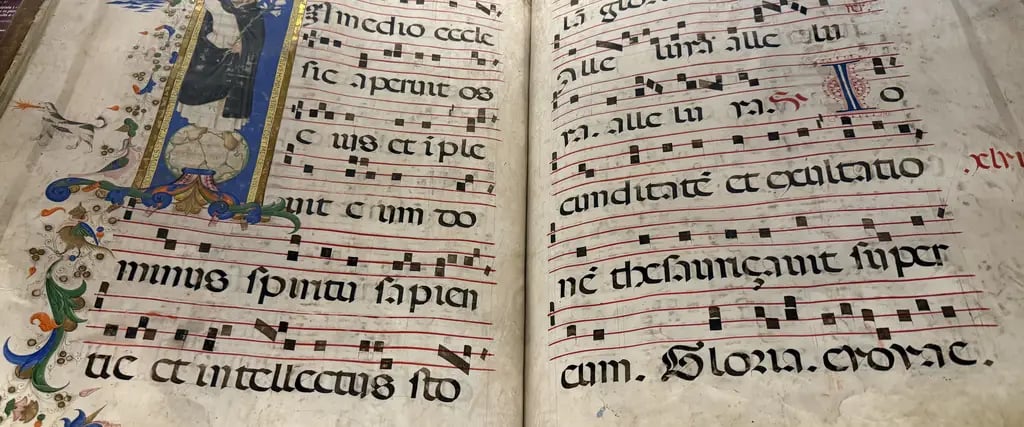 medio eccle
sie aperuit os
e ius et iple
uit e um do
minus spiritu sapien
tie et intellectus sto
alle luia alle lu
ia. alle lu ia. Io
cunditatē et exultatio
nē thesauriçauit super
eum. Gloria. evovae.